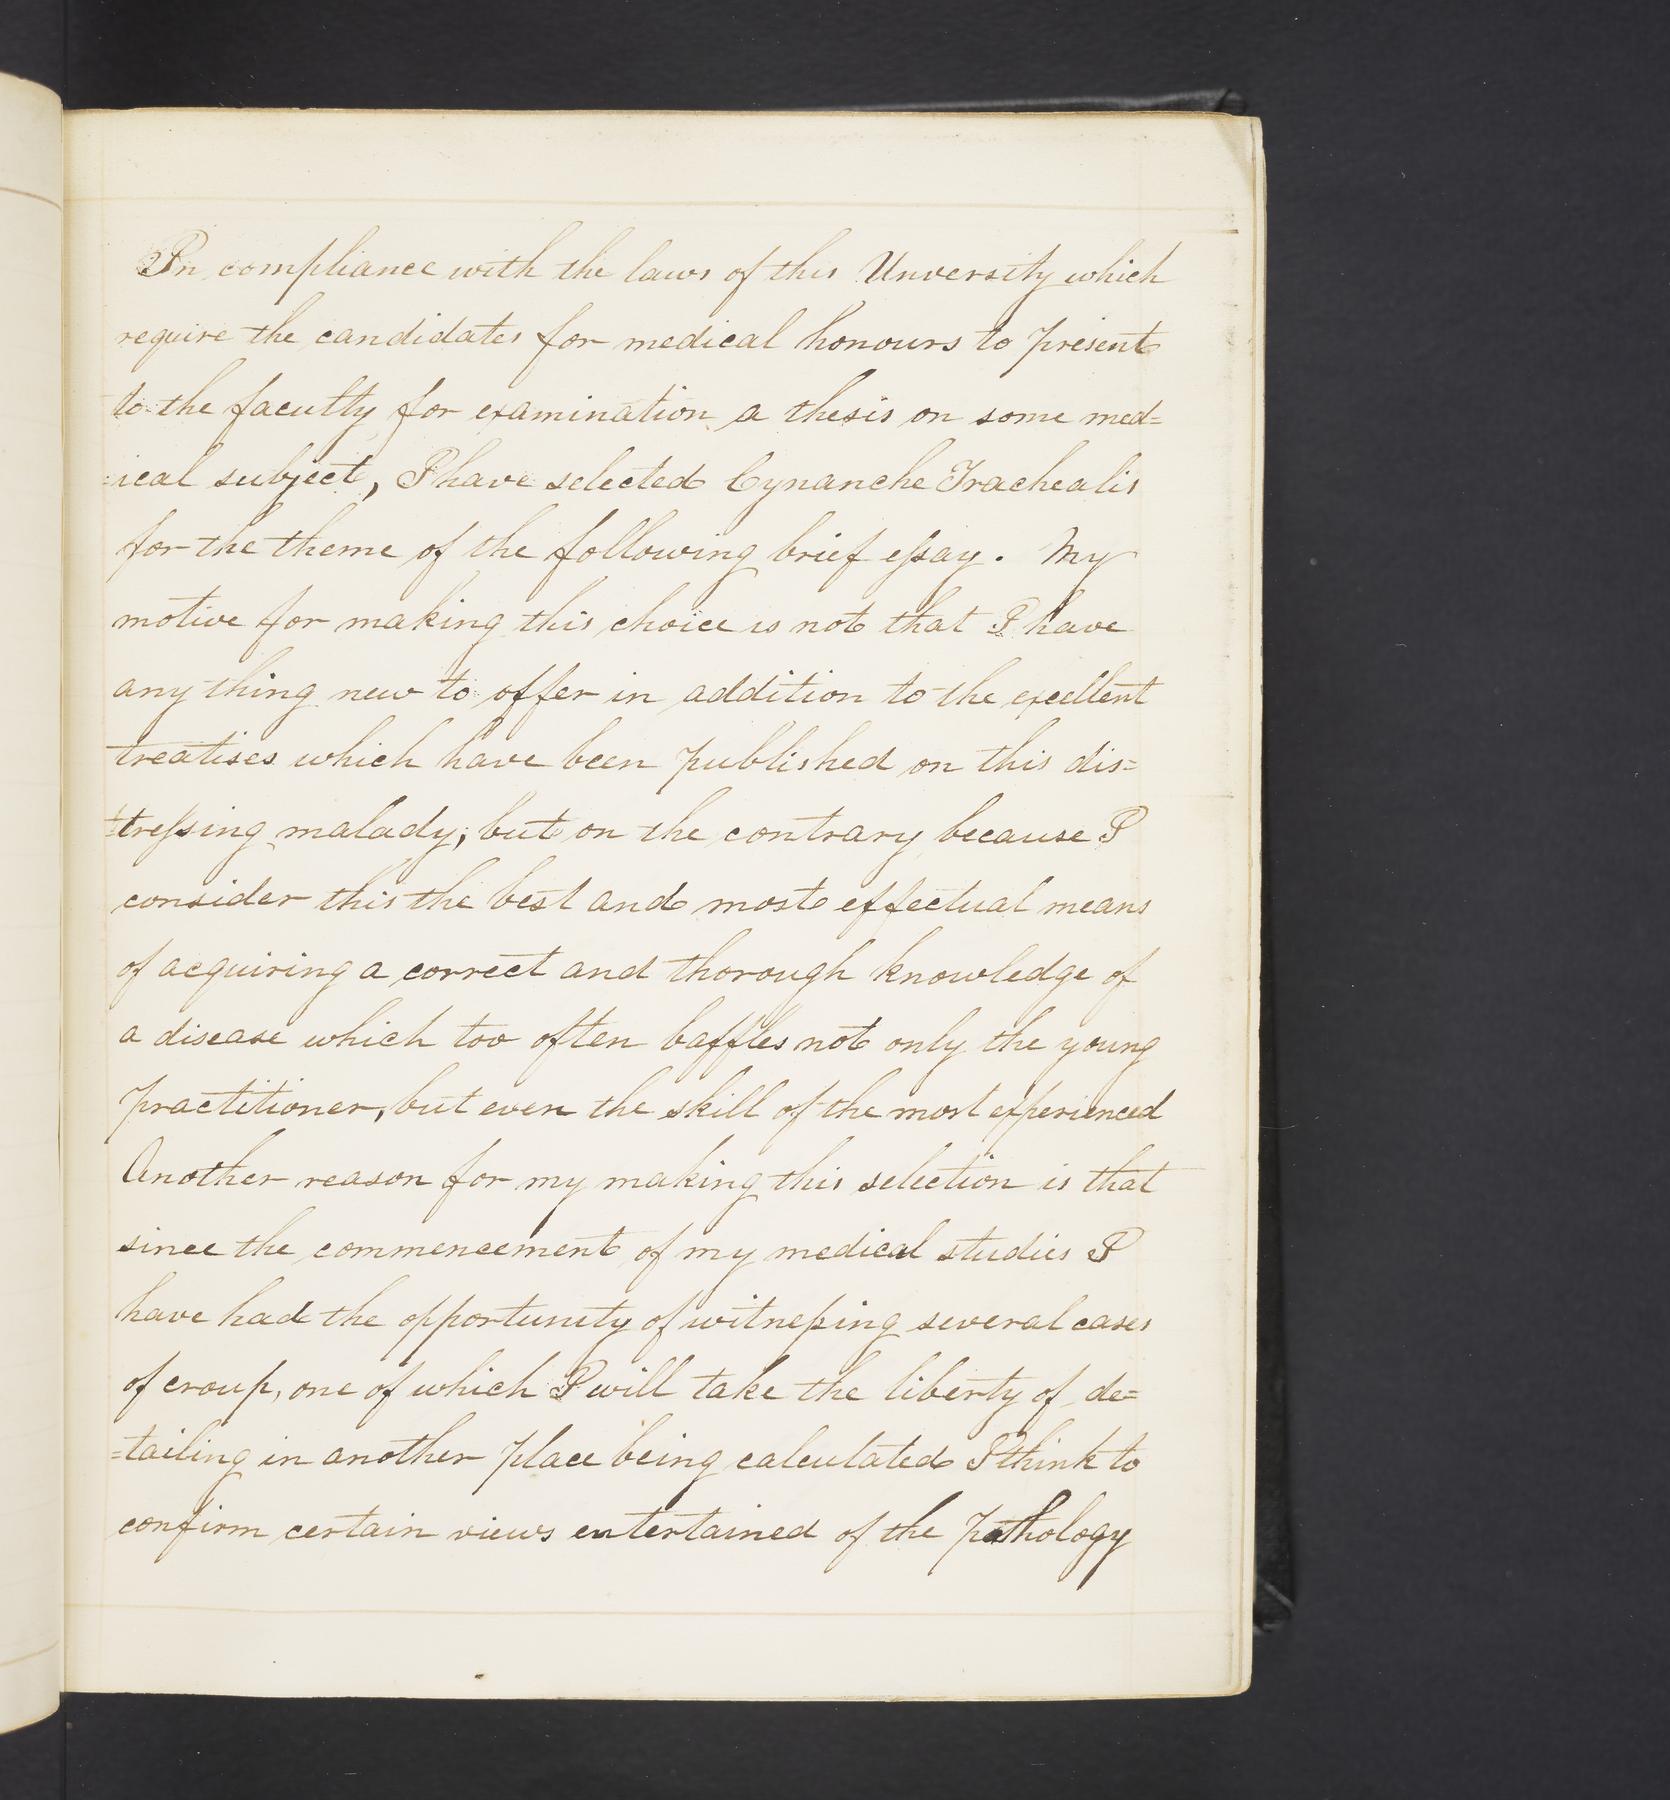 In compliance with the laws of this Unversity which
require the candidates for medical honours to present
to the faculty for examination a thesis on some med=
=ical subject, I have selected Cynanche Trachealis
for the theme of the following brief eſsay. My
motive for making this choice is not that I have
any thing new to offer in addition to the excellent
treatises which have been published on this dis=
=treſsing malady; but on the contrary because I
consider this the best and most effectual means
of acquiring a correct and thorough knowledge of
a disease which too often baffles not only the young
practitioner, but even the skill of the most experienced
Another reason for my making this selection is that
since the commencement of my medical studies I
have had the opportunity of witneſsing several cases
of croup, one of which I will take the liberty of de=
=tailing in another place being calculated I think to
confirm certain views entertained of the pathology